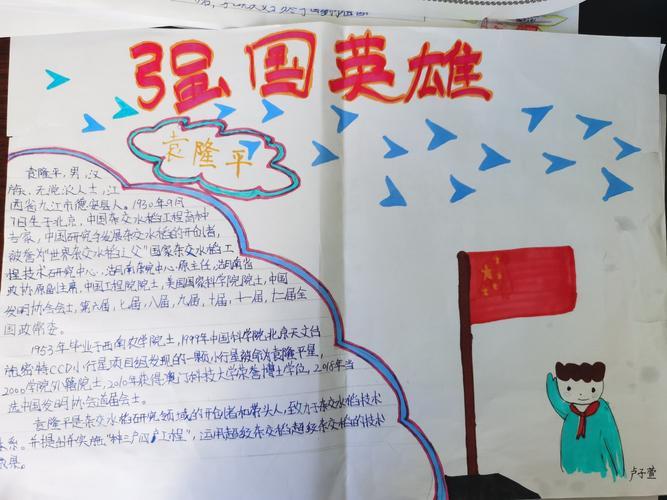 强国英雄
袁隆平
袁隆平，男，汉
族，无党派人士，江
西省九江市德安县人。1930年9月
7日生于北京，中国杂交水稻工程育种
专家，中国研究与发展杂交水稻的开创者，
被誉为"世界杂交水稻之父"国家杂交水稻工
程技术研究中心、湖南省 中心原主任，湖南省
政协原副主席，中国工程院院士，美国国家科学院院士，中国
发明协会会士，第六届，七届，八届，九届，十届，十一届，十二届全
国政常委。
1953年毕业于西南农学院士，1999年中国科学院北京天文台
施密特CCD小行星项目组发现的一颗小行星被命为袁隆平星，
2000学院外籍院士，2010年获得澳门科技大学荣誉博士学位，2018年当
选中国发明协会首届会士。
袁隆平是杂交水稻研究领域的开创者和带头人，致力于杂交水稻技术
体系。并提出并实施"种三产四产工程"，运用超级杂交稻的技术
成果。
卢子萱